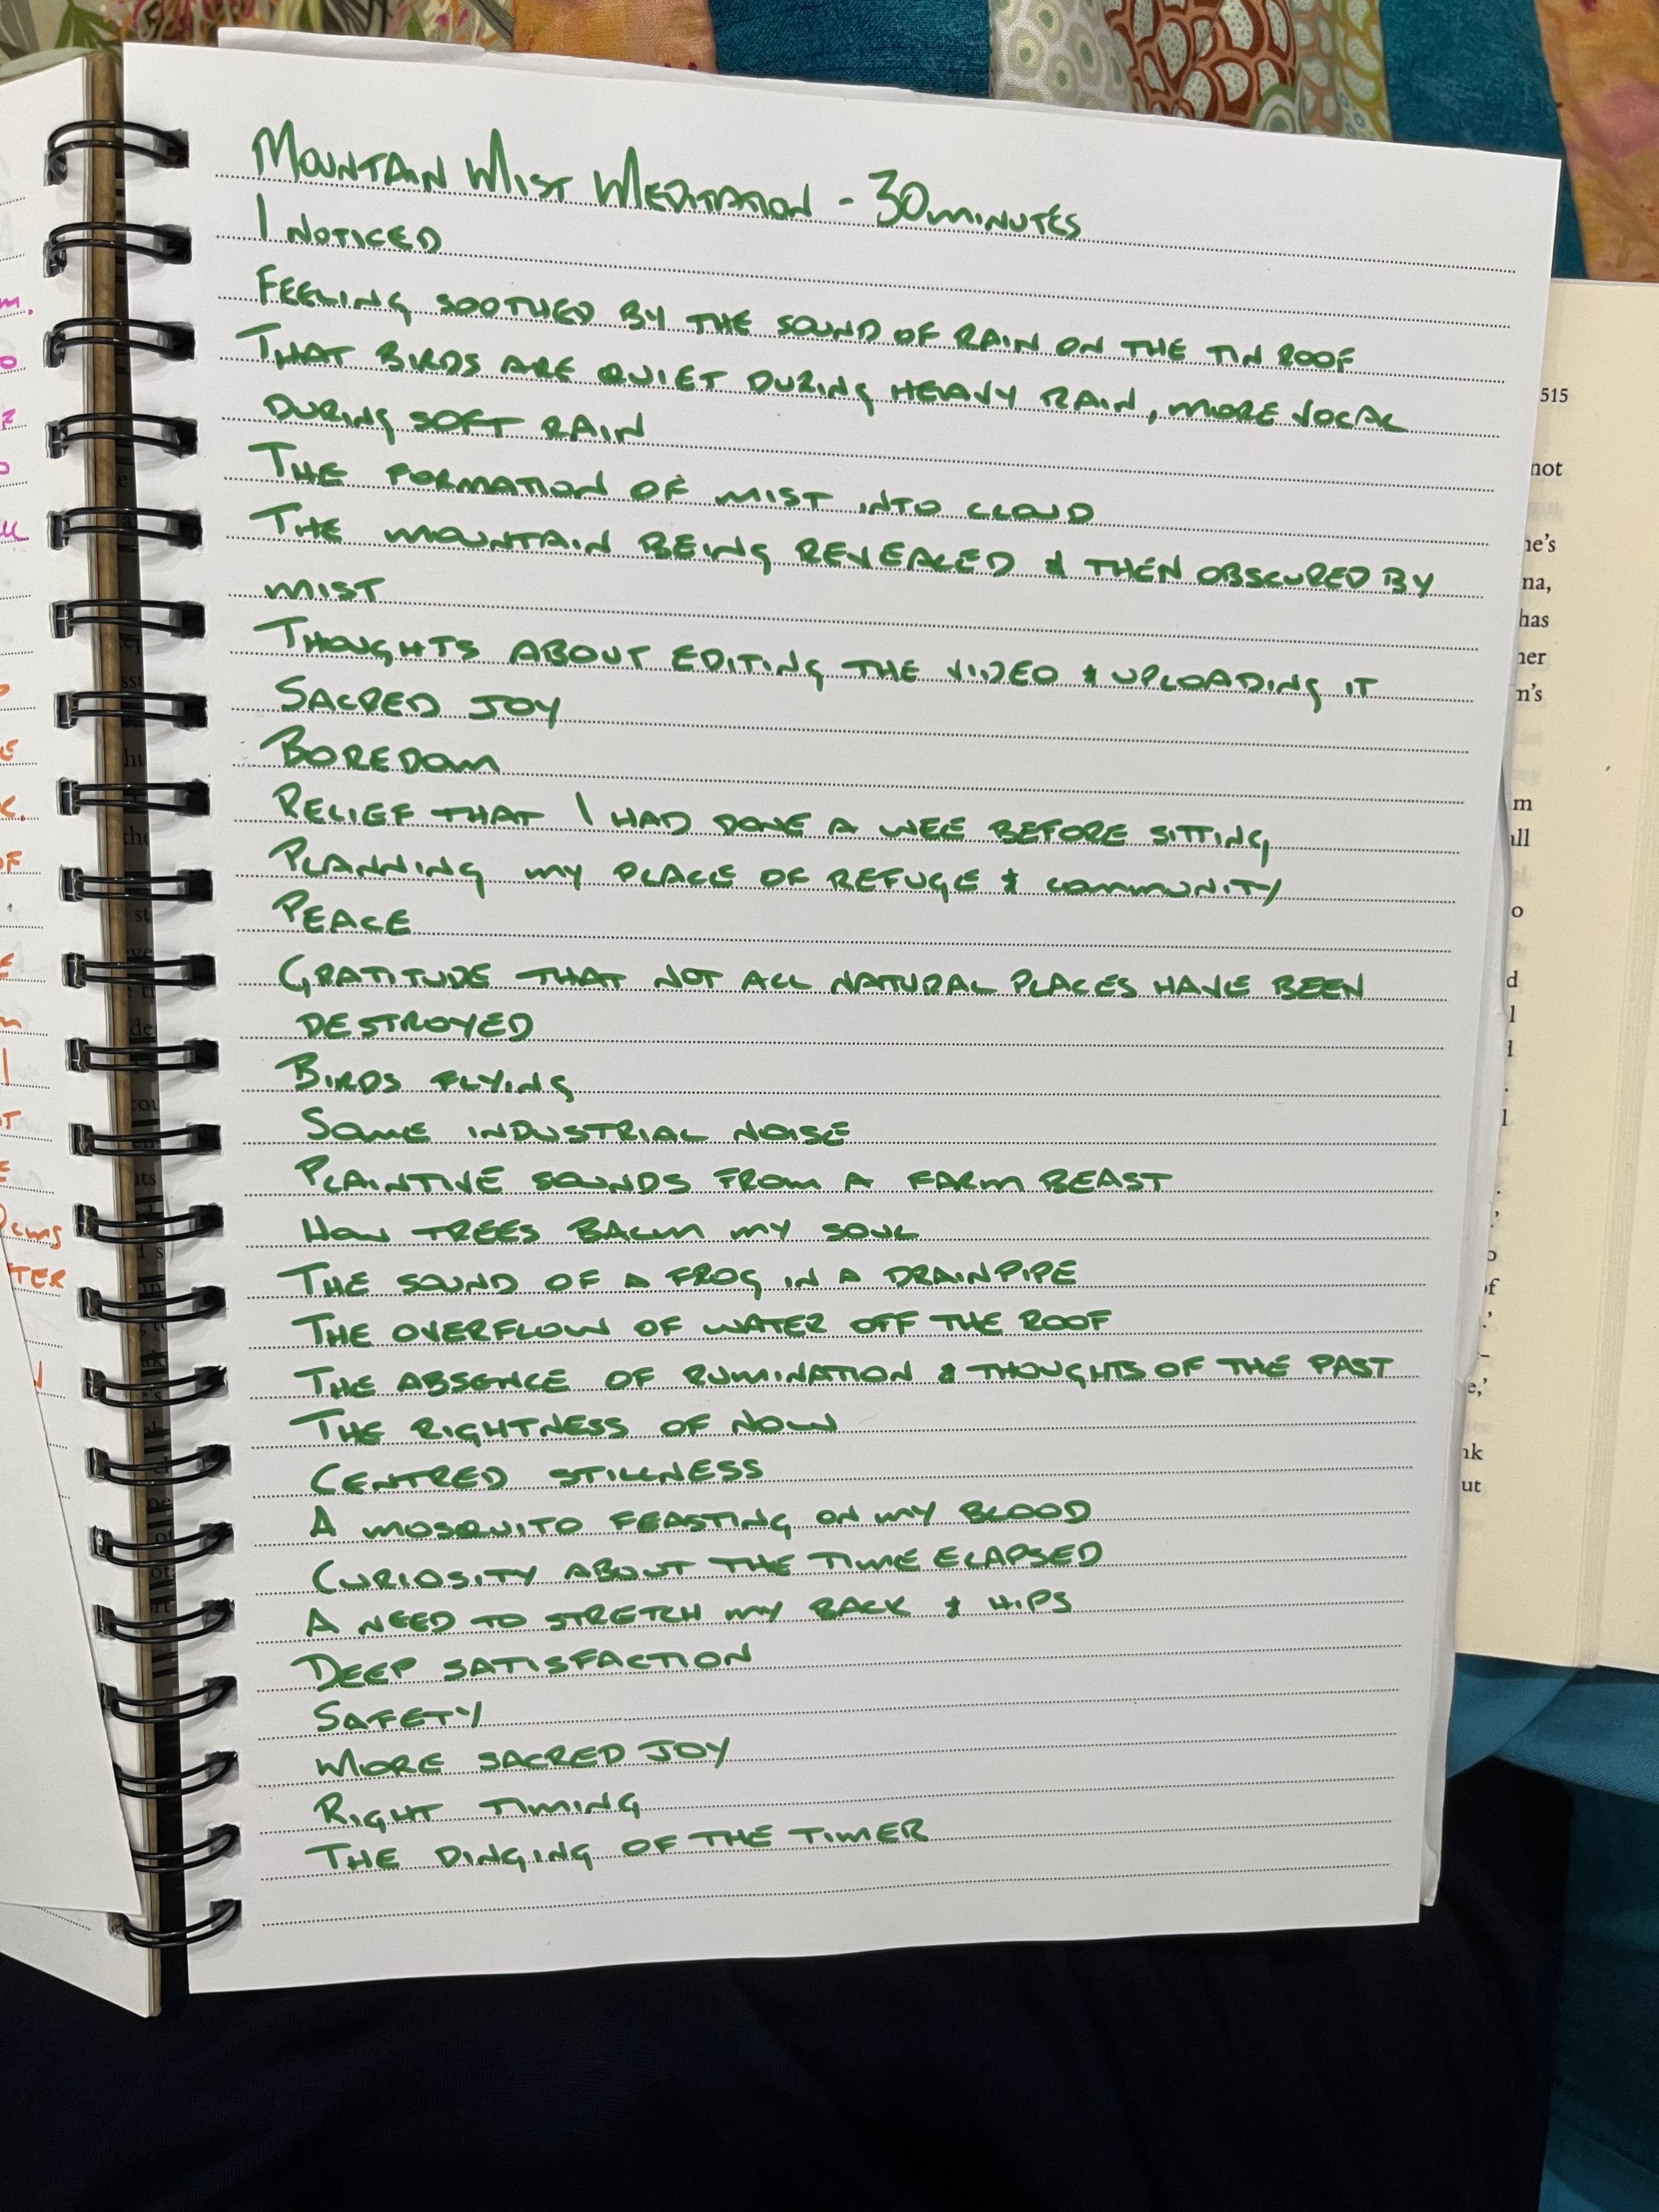 MOUNTAIN MIST MEDITATION - 30 MINUTES
I NOTICED
FEELING SOOTHED BY THE SOUND OF RAIN ON THE TIN ROOF
THAT BIRDS ARE QUIET DURING HEAVY RAIN, MORE VOCAL
DURING SOFT RAIN
THE FORMATION OF MIST INTO CLOUD
THE MOUNTAIN BEING REVEALED & THEN OBSCURED BY
MIST
THOUGHTS ABOUT EDITING THE VIDEO & UPLOADING IT
SACRED JOY
BOREDOM
RELIEF THAT I HAD DONE A WEE BEFORE SITTING
PLANNING MY PLACE OF REFUGE & COMMUNITY
PEACE
GRATITUDE THAT NOT ALL NATURAL PLACES HAVE BEEN
DESTROYED
BIRDS FLYING
SOME INDUSTRIAL NOISE
PLAINTIVE SOUNDS FROM A FARM BEAST
HOW TREES BALM MY SOUL
THE SOUND OF A FROG IN A DRAINPIPE
THE OVERFLOW OF WATER OFF THE ROOF
THE ABSENCE OF RUMINATION & THOUGHTS OF THE PAST
THE RIGHTNESS OF NOW
CENTRED STILLNESS
A MOSQUITO FEASTING ON MY BLOOD
CURIOSITY ABOUT THE TIME ELAPSED
A NEED TO STRETCH MY BACK & HIPS
DEEP SATISFACTION
SAFETY
MORE SACRED JOY
RIGHT TIMING
THE DINGING OF THE TIMER
515
not
he's
has